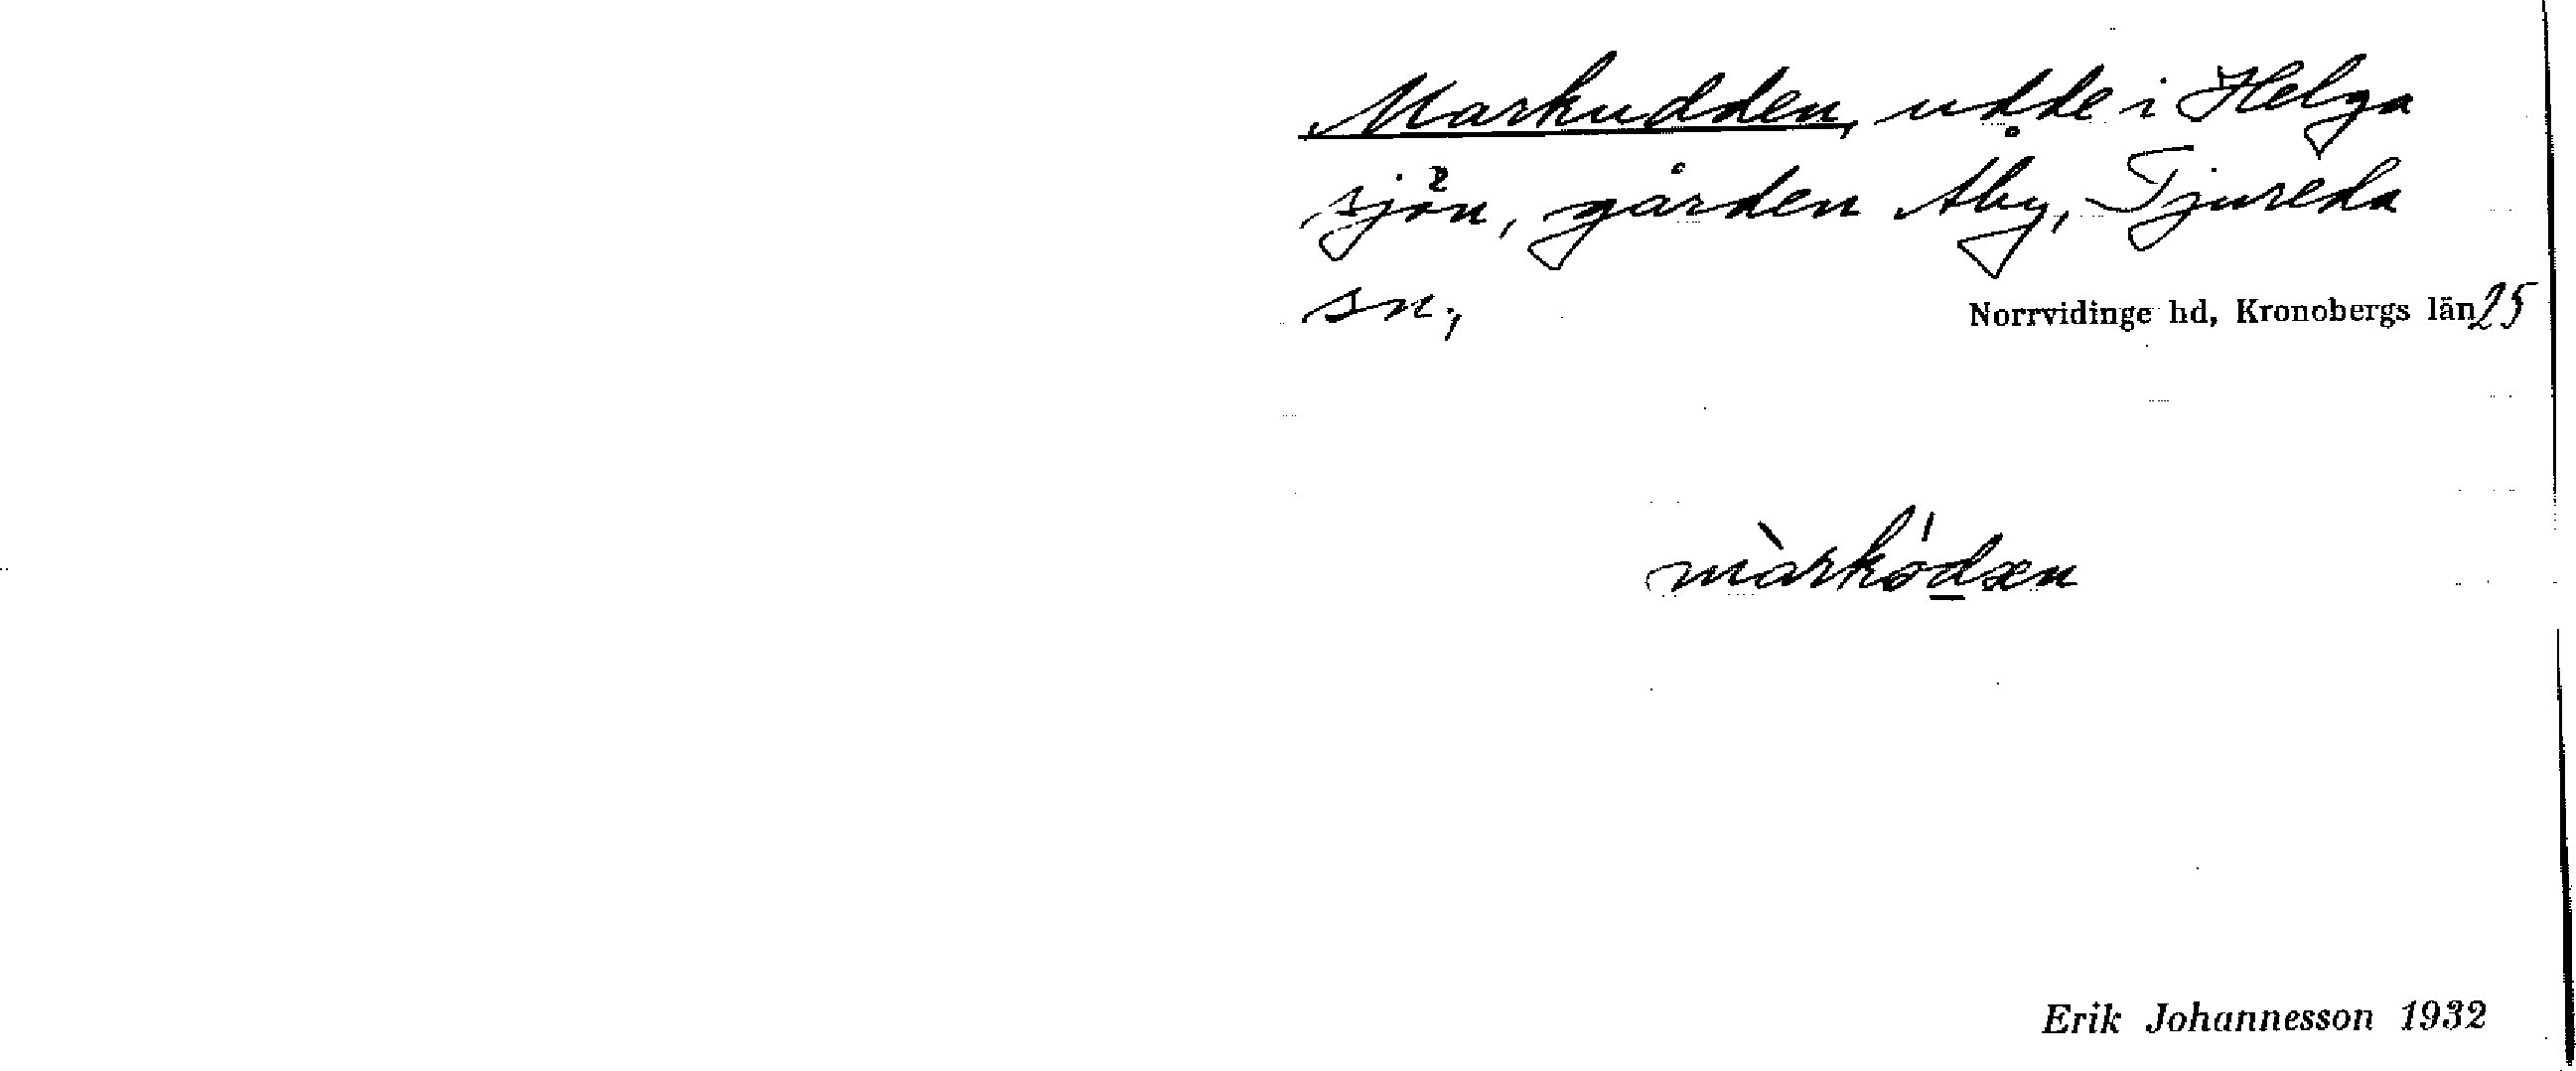 Markudden, udde i Helga
sjön, gården Åby, Tjureda
sn,
Norrvidinge hd, Kronobergs län 25
màrkö́dæn
Erik Johannesson 1932